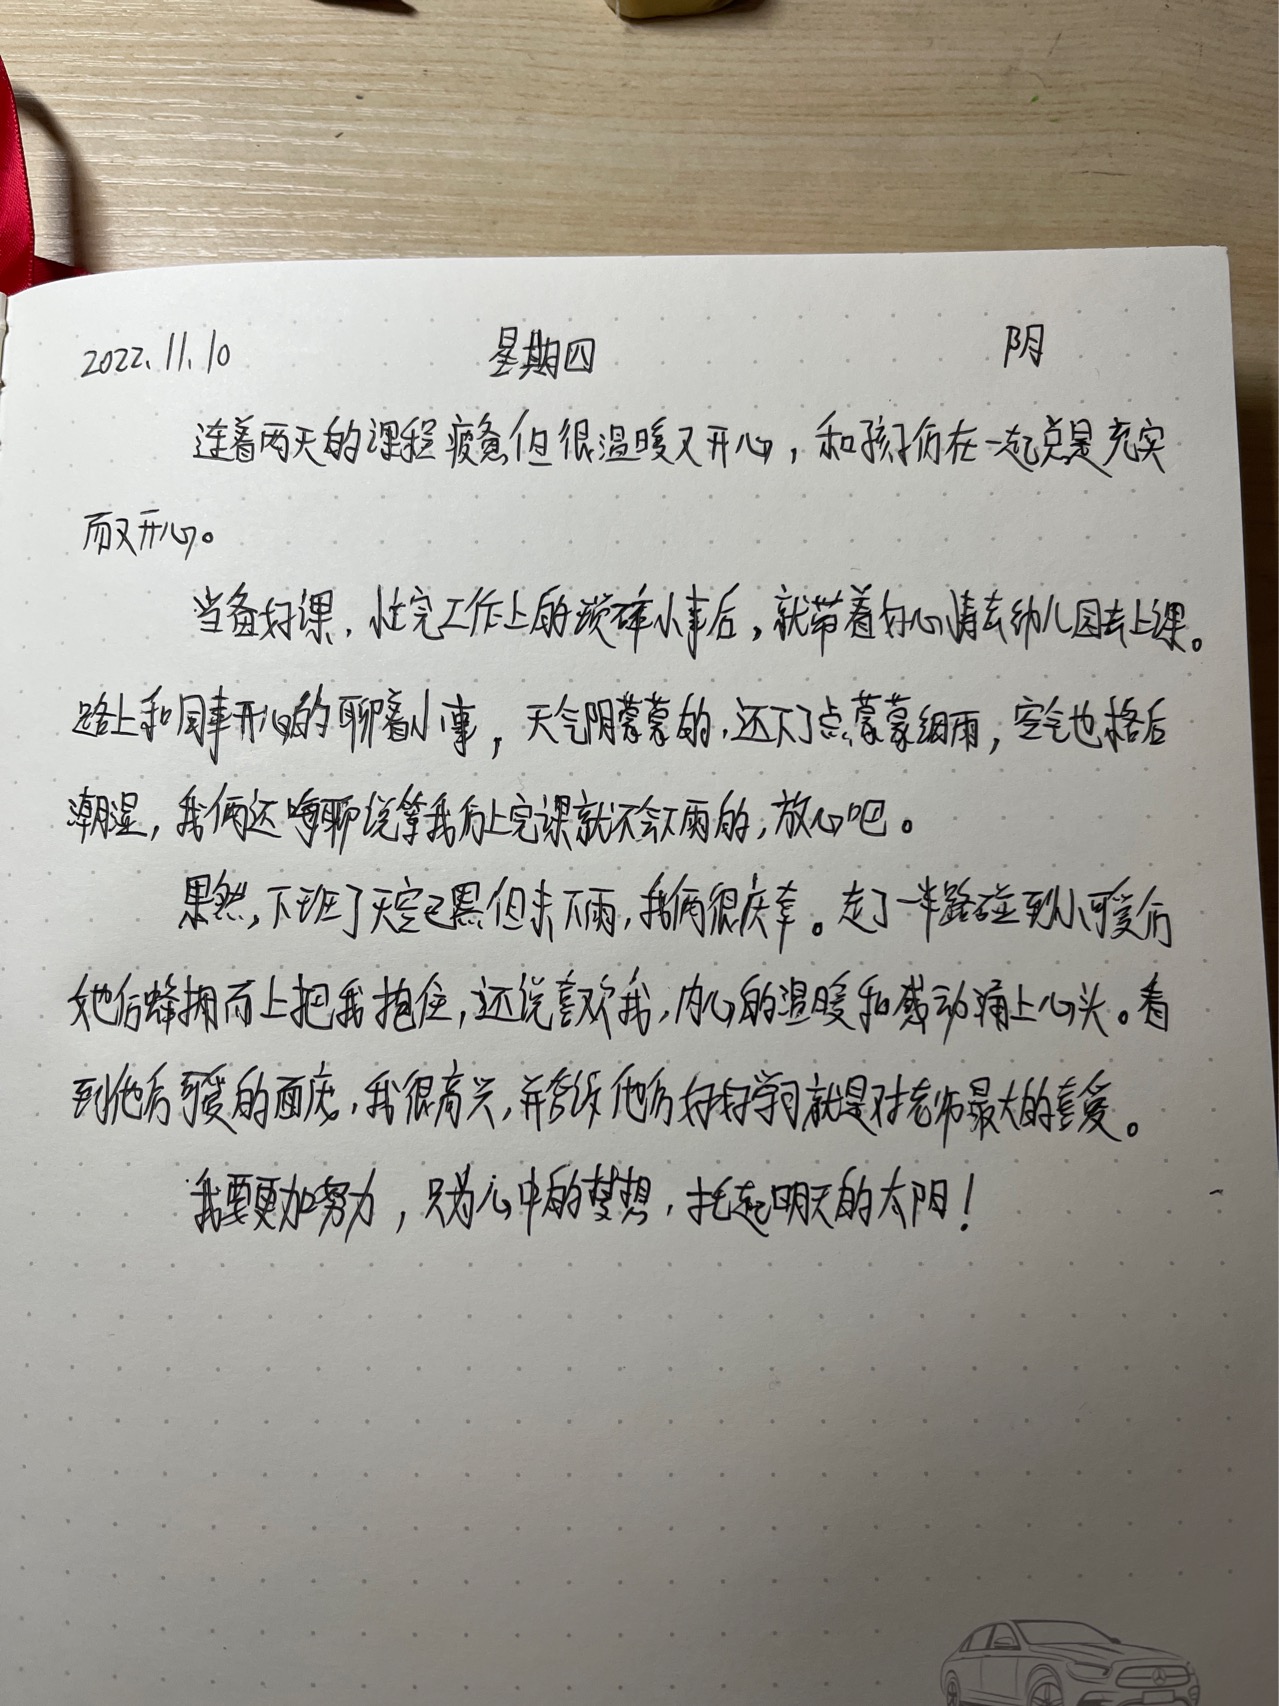 2022.11.10 星期四 阴
连着两天的课程疲惫但很温暖又开心，和孩子们在一起总是充实
而又开心。
当备好课，忙完工作上的琐碎小事后，就带着好心情去幼儿园去上课。
路上和同事开心的聊着小事，天气阴蒙蒙的，还下了点蒙蒙细雨，空气也格后
潮湿，我俩还唠聊说等我们上完课就不会下雨的，放心吧。
果然，下班了天空已黑但未下雨，我俩很庆幸。走了一半路碰到小可爱们
她们蜂拥而上把我抱住，还说喜欢我，内心的温暖和感动涌上心头。看
到他们可爱的面庞，我很高兴，并告诉他们好好学习就是对老师最大的喜爱。
我要更加努力，只为心中的梦想，托起明天的太阳！